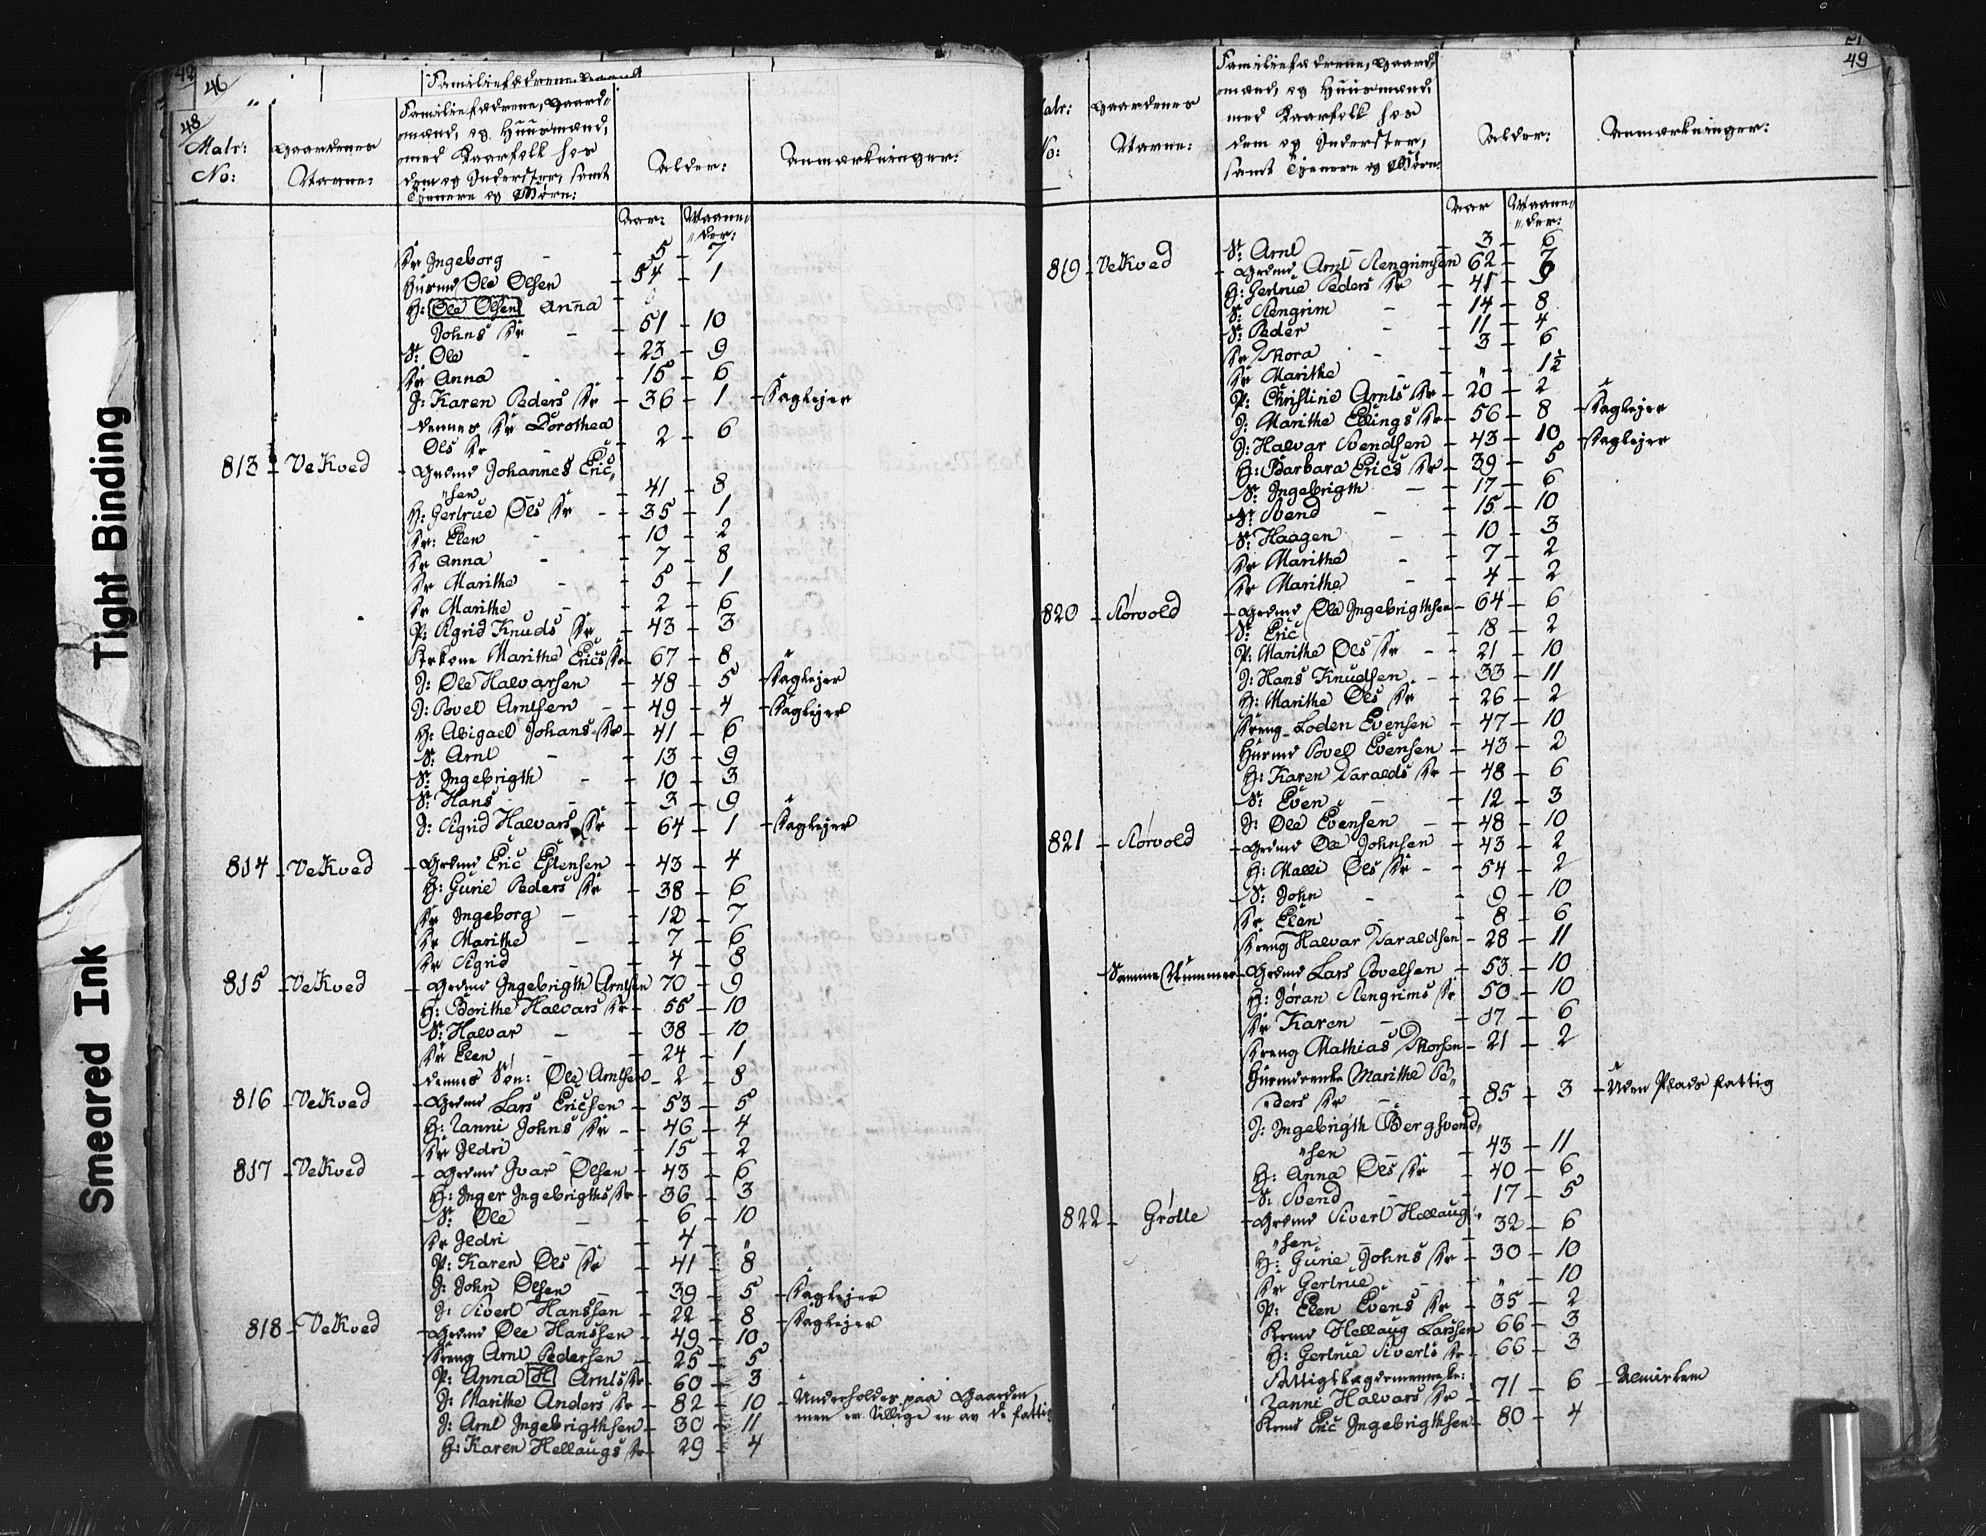 Tight Binding
Smeared Ink
46
48
Matr: No:
Gaardenes Navne:
Familiefædrene, Gaard-
mænd, og Huusmænd,
med Kaarfolk hos
dem og Inderster, samt
Tjenere og Børn:
Alder:
Anmærkninger:
Aar: Maane-
der:
Dr Ingeborg - 5 - 7
Husmd Ole Olsen - 54 - 1
H: Ole Olsen Anna
Johns Dr - 51 - 10
S: Ole - 23 - 9
Dr Anna - 15 - 6
J: Karen Peders Dr - 36 - 1 -
dennes Dr Dorothea
Ols Dr - 2 - 6
813 - Vekved - Grdmd Johannes Eric
"sen - 41 - 8
H: Gertrue Ols Dr - 35 - 1
Dr: Elen - 10 - 2
Dr Anna - 7 - 8
Dr Marithe - 5 - 1
Dr Marithe - 2 - 6
P: Sigrid Knuds Dr - 43 - 3
Marithe Erics Dr - 67 - 8
J: Ole Halvorsen - 48 - 5 -
J: Povel Arntsen - 49 - 4 -
H: Abigael Johans Dr - 41 - 6
S: Arnt - 13 - 9
S: Ingebrigth - 10 - 3
S: Hans - 3 - 9
J: Sigrid Halvars Dr - 64 - 1 -
814 - Vekved - Grdmd Eric Estensen - 43 - 4
H: Gurie Peders Dr - 38 - 6
Dr Ingeborg - 12 - 7
Dr Marithe - 7 - 6
Dr Sigrid - 4 - 8
815 - Vekved - Grdmd Ingebrigth Arntsen 70 - 9
H: Borithe Halvars Dr - 55 - 10
S: Halvar - 38 - 10
Dr Elen - 24 - 1
dennes Søn: Ole Arntsen - 2 - 8
816 - Vekved - Grdmd Lars Ericsen - 53 - 5
H: Zanni Johns Dr - 46 - 4
Dr Jldri - 15 - 2
817 - Vekved - Grdmd Ivar Olsen - 43 - 6
H: Inger Ingebrigths Dr - 36 - 3
S: Ole - 6 - 10
Dr Jldri - 4 - "
P: Karen Ols Dr - 41 - 8
J: John Olsen - 39 - 5 -
J: Sivert Hanssen - 22 - 8 -
818 - Vekved - Grdmd Ole Hanssen - 49 - 10
Dreng Arnt Pedersen - 25 - 5
P: Anna H Arnts Dr - 60 - 3
J: Marithe Anders Dr - 82 - 10 - Underholdes paa Gaarden,
men er tillige en av de fattig
J: Arnt Ingebrigthsen - 30 - 11
H: Karen Hellaugs Dr - 29 - 4
49
Matr: No:
Gaardenes Navne:
Familiefædrene, Gaard-
mænd, og Huusmænd
med Kaarfolk hos
dem og Inderster,
samt Tjenere og Børn:
Alder:
Anmærkninger:
Aar Maane-
der:
S: Arnt - 3 - 6
819 - Vekved - Grdmd Arnt Stengrimsen 62 - 7
H: Gertrue Peders Dr - 41 - 9
S: Stengrim - 14 - 8
S: Peder - 11 - 4
Dr Thora - 3 - 6
Dr Marithe - " - 1½
P: Christine Arnts Dr - 20 - 2
J: Marithe Ellings Dr - 56 - 8 -
J: Halvar Svendsen - 43 - 10 -
H: Barbara Erics Dr - 39 - 5
S: Ingebrigth - 17 - 6
S: Svend - 15 - 10
S: Haagen - 10 - 3
Dr Marithe - 7 - 2
Dr Marithe - 4 - 2
820 - Størvold - Grdmd Ole Ingebrigthsen - 64 - 6
S: Eric - 18 - 2
P: Marithe Ols Dr - 21 - 10
J: Hans Knudsen - 33 - 11
H: Marithe Ols Dr - 26 - 2
Dreng Loden Evensen - 47 - 10
Husmd Povel Evensen - 43 - 2
H: Karen Taralds Dr - 48 - 6
S: Even - 12 - 3
J: Ole Evensen - 48 - 10
821 - Størvold - Grdmd Ole Johnsen - 43 - 2
H: Malli Ols Dr - 54 - 2
S: John - 9 - 10
Dr Elen - 8 - 6
Dreng Halvar Taraldsen - 28 - 11
Samme Nummer - Grdmd Lars Povelsen - 53 - 10
H: Jøran Stengrims Dr - 50 - 10
Dr Karen - 17 - 6
Dreng Mathias Thorsen - 21 - 2
Husmdenke Marithe Pe-
ders Dr - 85 - 3 - Uden Plads fattig
J: Ingebrigth Bergsvend
"sen - 43 - 11
H: Anna Ols Dr - 40 - 6
S: Svend - 17 - 5
822 - Grötte - Grdmd Sivert Hellaug
"sen - 32 - 6
H: Gurie Johns Dr - 30 - 10
Dr Gertrue - " - 10
P: Elen Evens Dr - 35 - 2
Krmd Hellaug Larssen 66 - 3
H: Gertrue Siverts Dr - 66 - 3
Fattiglægdsmenneske:
Zanni Halvars Dr - 71 - 6 -
Krmd Eric Ingebrigthsen - 80 - 4